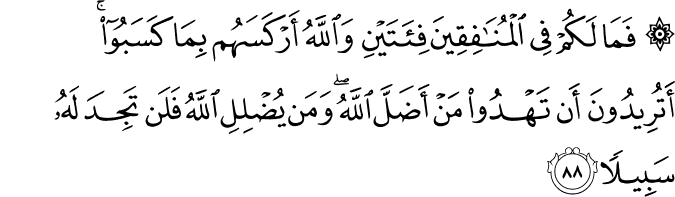 ۞ فَمَا لَكُمْ فِى ٱلْمُنَـٰفِقِينَ فِئَتَيْنِ وَٱللَّهُ أَرْكَسَهُم بِمَا كَسَبُوٓا۟ ۚ
أَتُرِيدُونَ أَن تَهْدُوا۟ مَنْ أَضَلَّ ٱللَّهُ ۖ وَمَن يُضْلِلِ ٱللَّهُ فَلَن تَجِدَ لَهُۥ
سَبِيلًا ٨٨